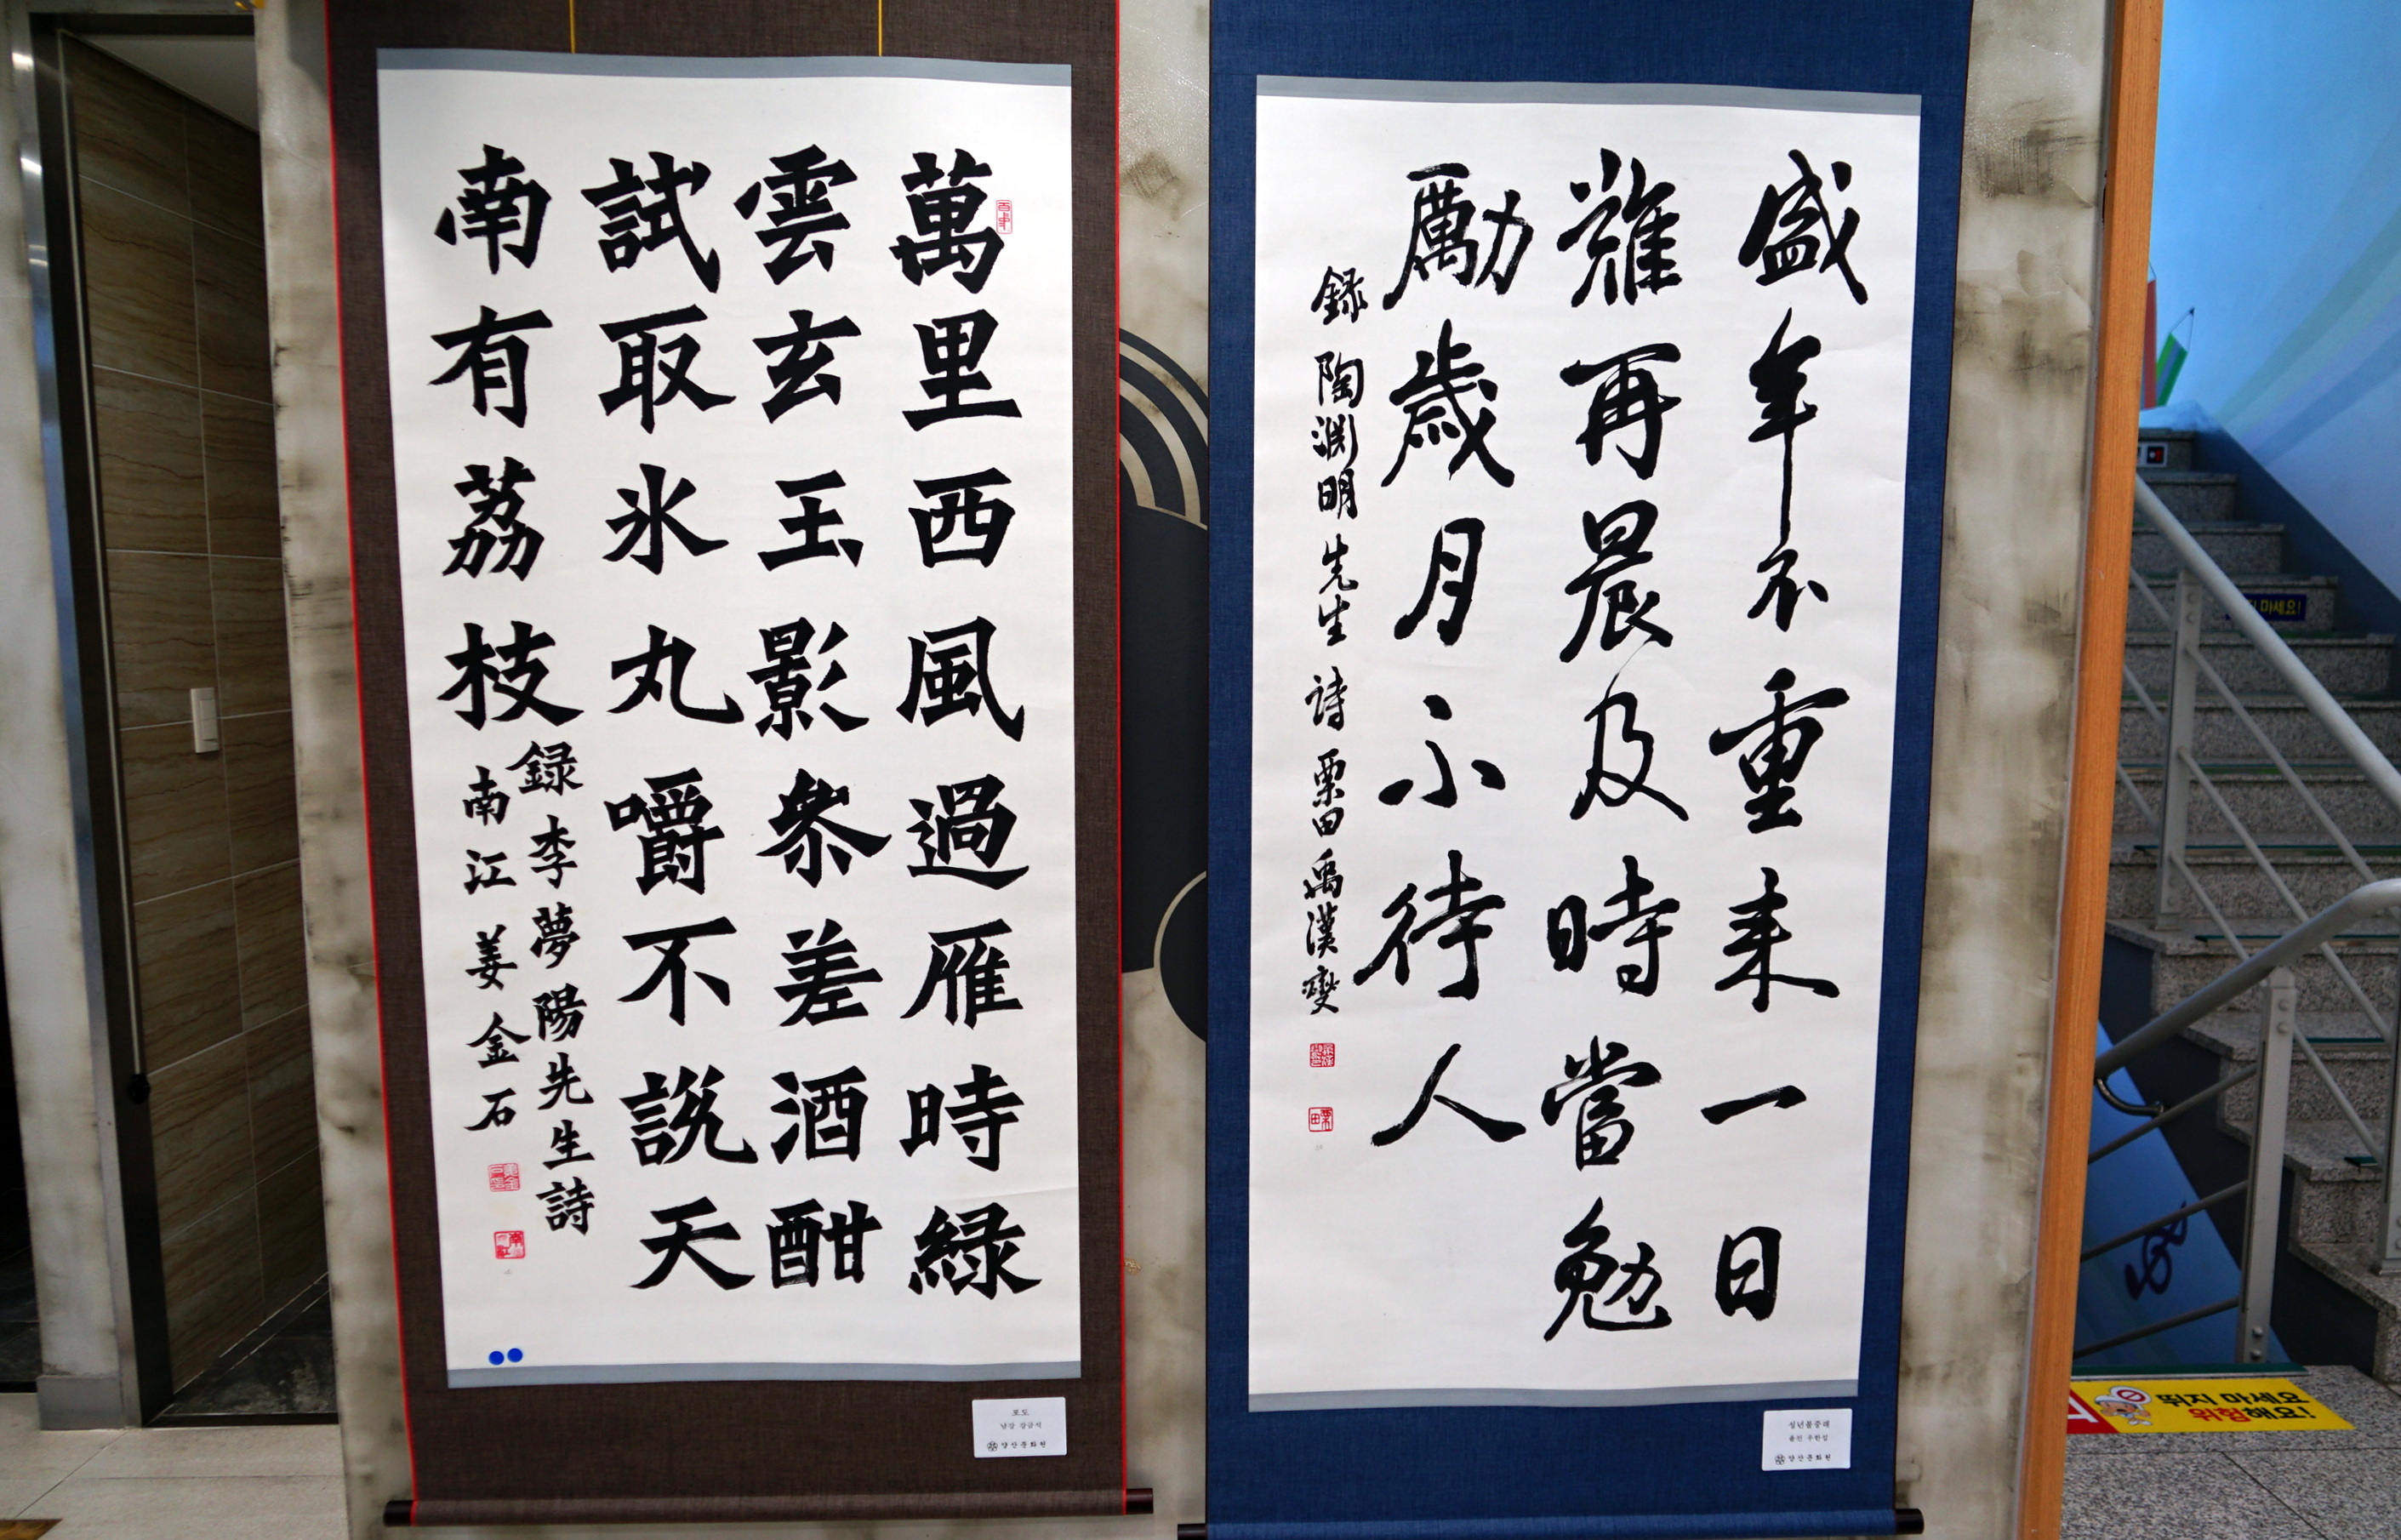 萬里西風過雁時綠
雲玄玉影參差酒酣
試取氷丸嚼不說天
南有荔枝
録李夢陽先生詩
南江 姜金石
포도
남강 강금석
양산문화원
盛年不重来一日
難再晨及時當勉
勵歲月不待人
録陶淵明先生詩 栗田 禹漢燮
성년불중래
율전 우한섭
양산문화원
지 마세요!
뛰지 마세요
위험해요!